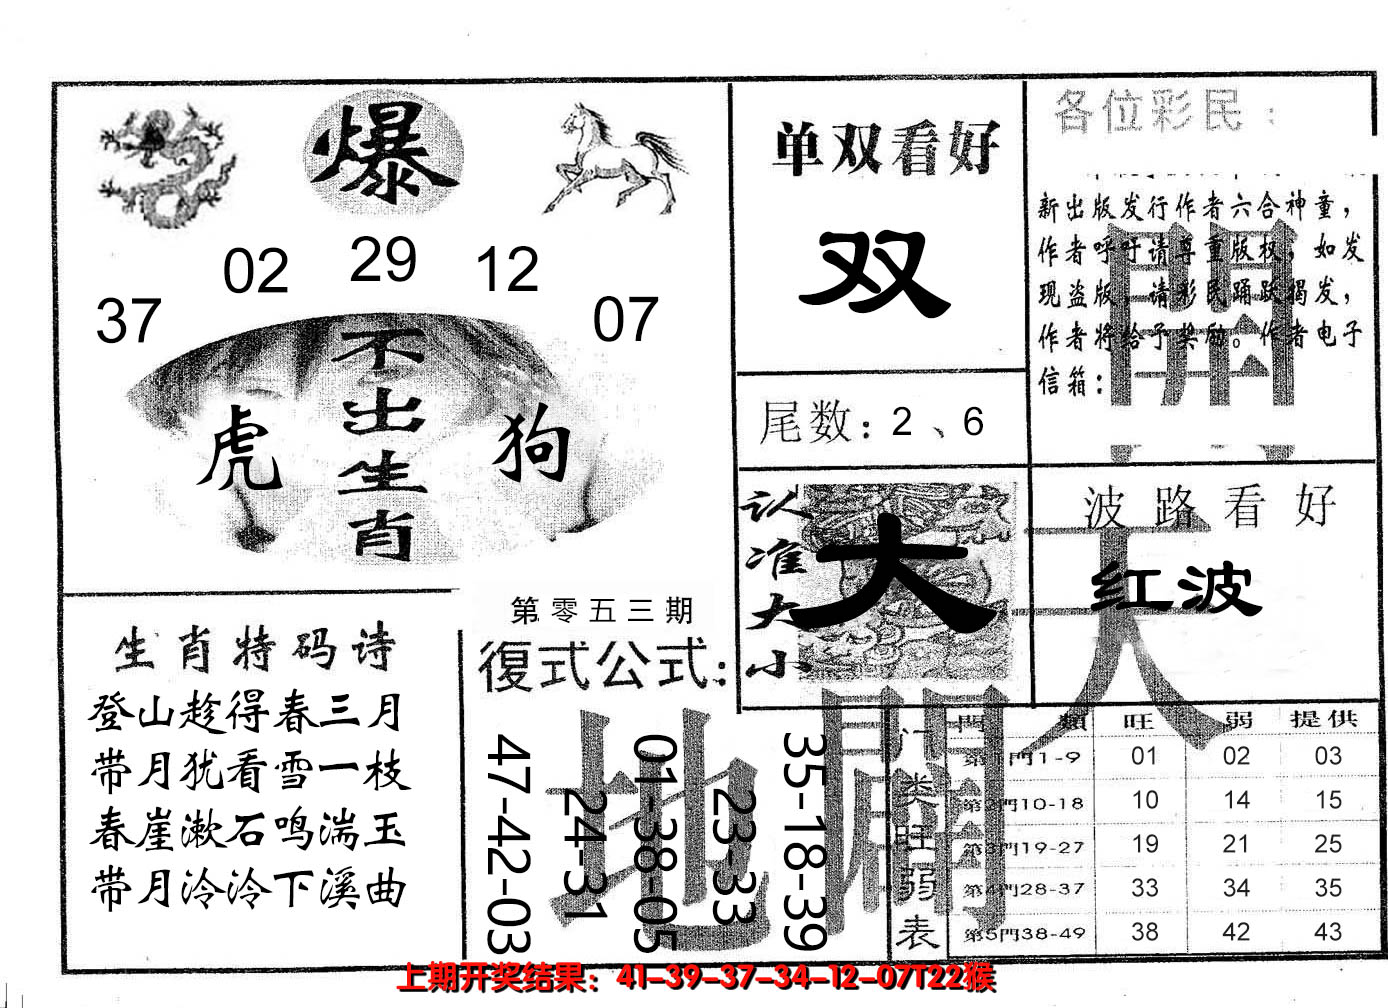 爆
37
02
29
12
07
不出生肖
虎
狗
单双看好
双
尾数：2、6
认准大小
大
各位彩民：
新出版发行作者六合神童，
作者呼吁请尊重版权，如发
现盗版，请彩民踊跃揭发，
作者将给予奖励。作者电子
信箱：
波路看好
红波
生肖特码诗
登山趁得春三月
带月犹看雪一枝
春崖漱石鸣湍玉
带月泠泠下溪曲
第零五三期
復式公式：
47-42-03
24-31
01-38-05
23-33
35-18-39
天
開
地
闢
门类旺弱表
門 類 旺 弱 提供
第1門1-9 01 02 03
第2門10-18 10 14 15
第3門19-27 19 21 25
第4門28-37 33 34 35
第5門38-49 38 42 43
上期开奖结果：41-39-37-34-12-07T22猴